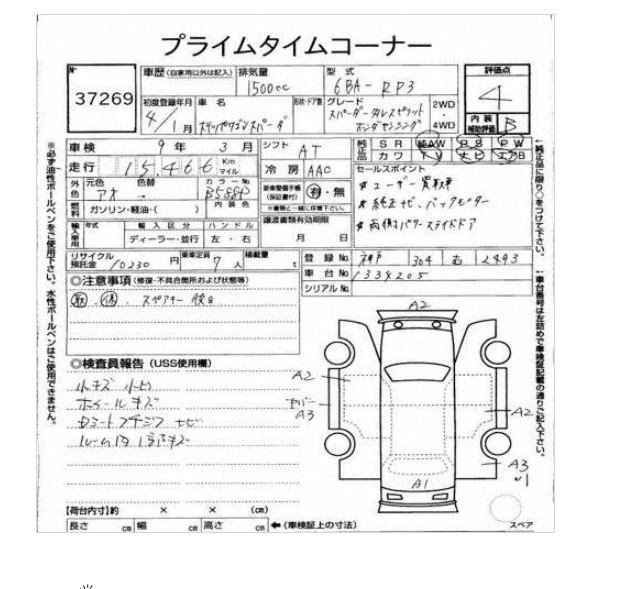 プライムタイムコーナー
№ 37269
車歴(自家用以外は記入) 排気量 1500cc 型式 6BA- RP3 評価点 4
初度登録年月 4/1月 車名 ステップワゴンスパーダ 形状・ドア数 グレード スパーダ・クールスピリット ホンダセンシング 2WD・4WD 内装補助評価 B
車検 9年3月 シフト AT 純正品 SR 純AW PS PW
カワ TV ナビ エアB
走行 15,466 Km マイル 冷房 AAC セールスポイント
外色 元色 アオ 色替 → カラーNo B588P 内装色 新車整備手帳(保証書付) 有・無 ※書類と一緒に保管下さい。 ★ユーザー買取車
燃料 ガソリン・軽油・( ) ★純正ナビ、バックモニター
輸入車用 年式 輸入区分 ディーラー・並行 ハンドル 左・右 譲渡書類有効期限 月 日 ★両側パワースライドドア
リサイクル預託金 10230円 乗車定員 7人 積載量 t 登録No. 神戸 304 む 2493
車台No. 1334205
シリアルNo.
◎注意事項(修復・不具合箇所および状態等)
取・保・スペアキー 後日
◎検査員報告(USS使用欄)
小キズ 小凹
ホイールキズ
ルーム内 1部キズ
A2
A2
A3
A2
A3
A1
【荷台内寸】約 × × (cm)
長さ cm 幅 cm 高さ cm ←(車検証上の寸法)
スペア
※必ず油性ボールペンをご使用下さい。水性ボールペンはご使用できません。
←純正品に限り○をつけて下さい。
←車台番号は左詰めで車検証記載の通りご記入下さい。